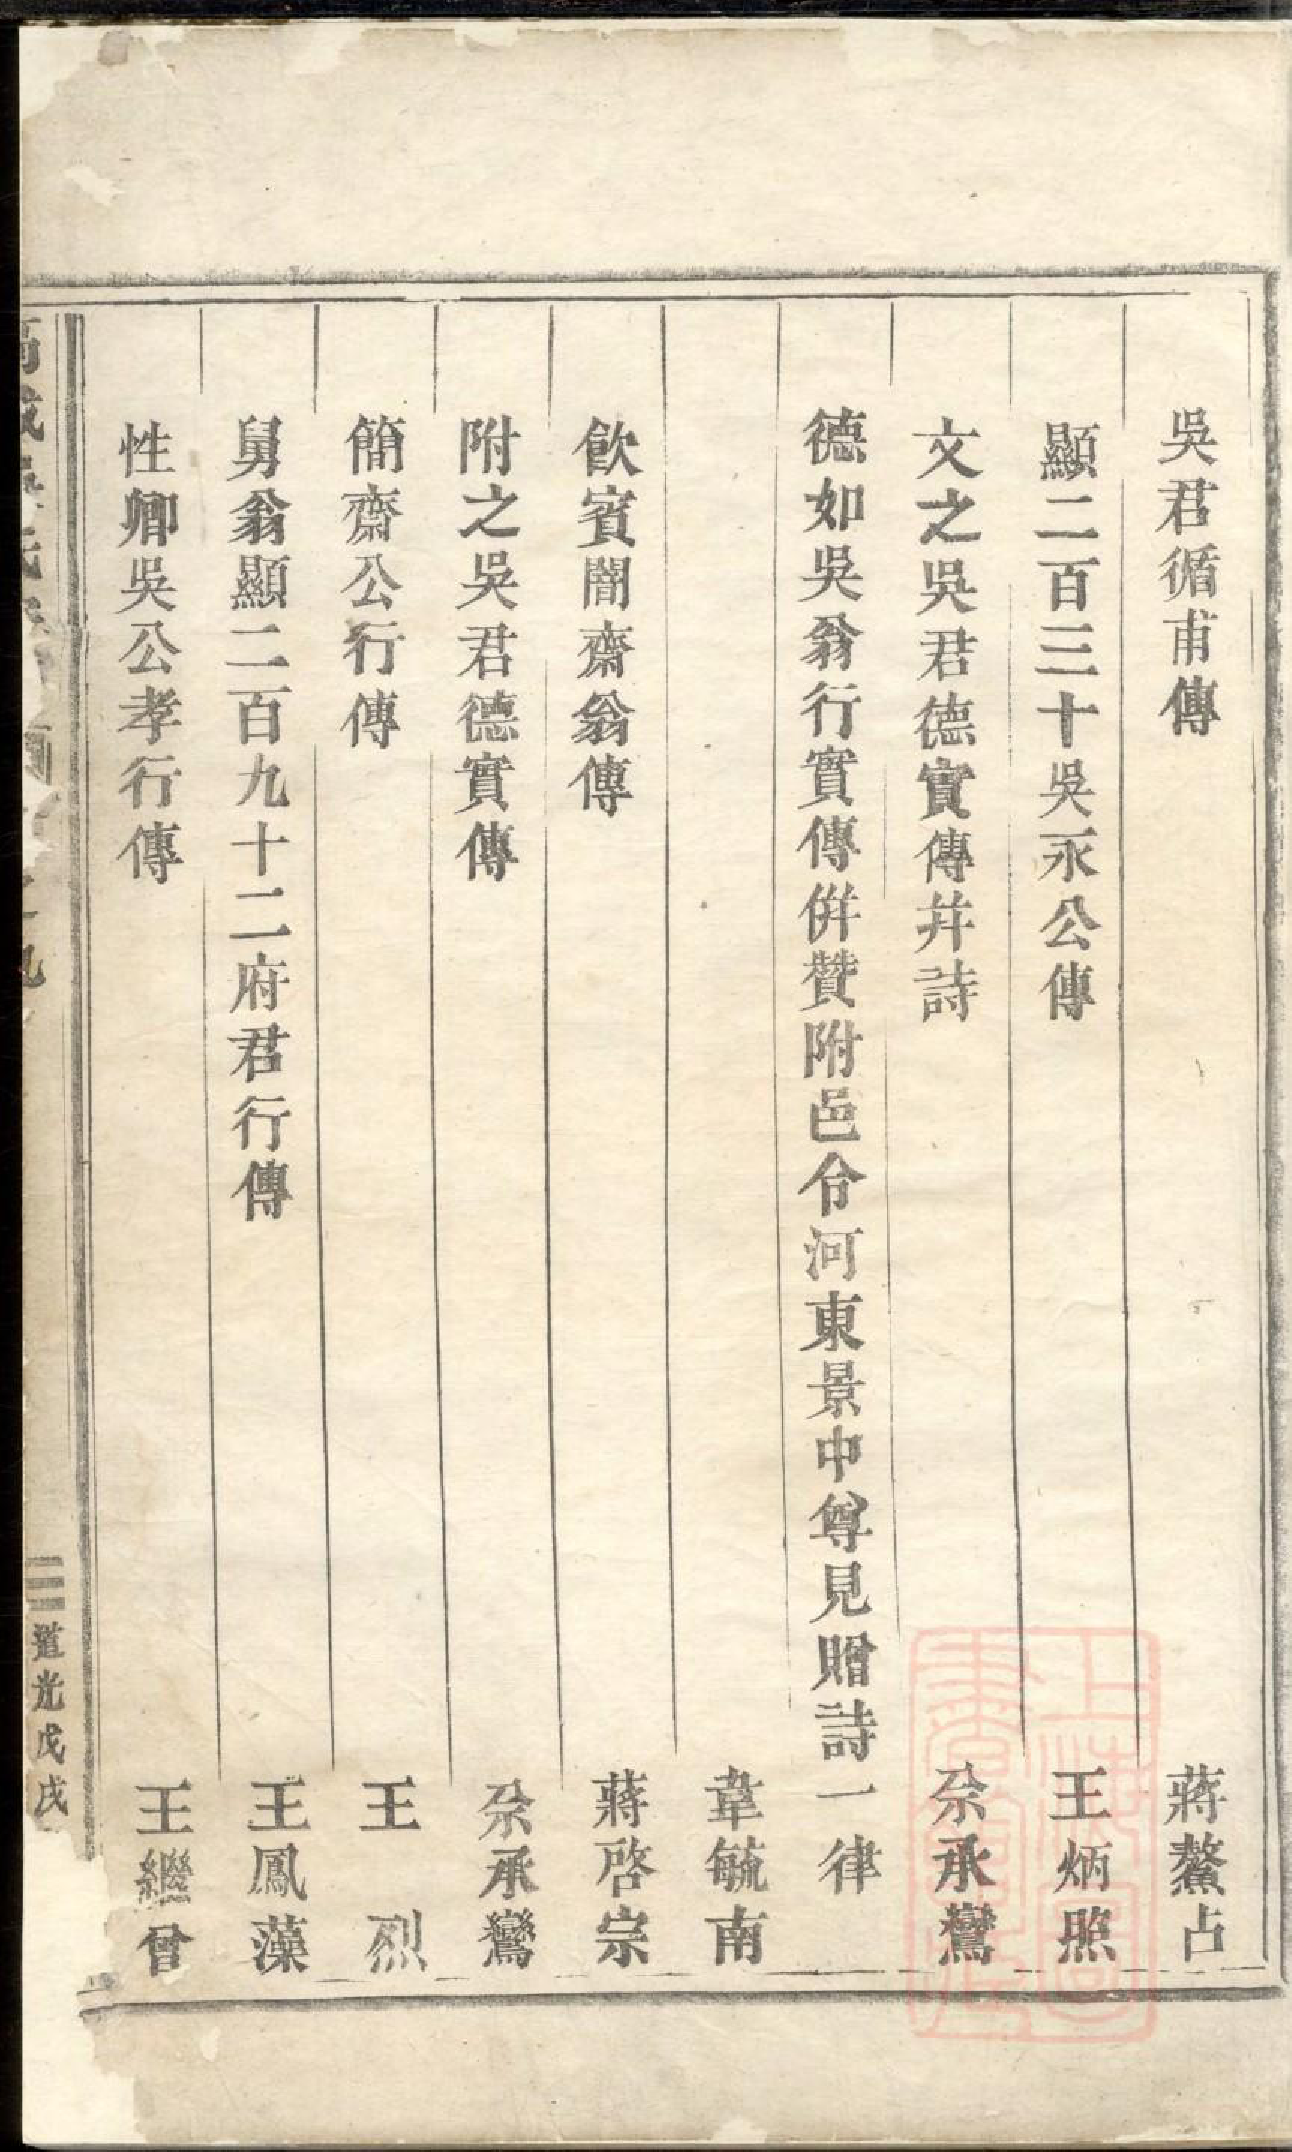 吳君循甫傳 蔣鰲占
顯二百三十吳永公傳 王炳照
文之吳君德實傳并詩 佘承鸞
德如吳翁行實傳併贊附邑令河東景中尊見贈詩一律
韋毓南
飲賓闇齋翁傳 蔣啓宗
附之吳君德實傳 佘承鸞
簡齋公行傳 王烈
舅翁顯二百九十二府君行傳 王鳳藻
性卿吳公孝行傳 王繼曾
三 道光戊戌
上海圖書館藏